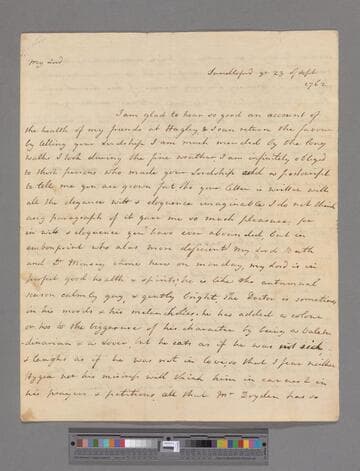 My Lord
Sunderland ye 23 of Sept
1762
I am glad to hear so good an account of
the health of my friends at Hagley, & I can return the favour
by telling your Lordship I am much mended by the long
walks I took during the fine weather. I am infinitely obliged
to those persons who made your Lordship add a postscript
to tell me you are grown fat tho your letter is written with
all the elegance wit & eloquence imaginable I do not think
any paragraph of it gave me so much pleasure, for
in wit & eloquence you have ever abounded, but in
embonpoint was alas more deficient. My Lord Bath
and Dr Monsey came here on monday, my Lord is in
perfect good health & spirits; he is like the autumnal
season calmly gay, & gently bright. The Doctor is sometimes
in his moods & his melancholies; he has added a colour
or two to the bizarrerie of his character by being a valetu
dinarian & a lover, but he eats as if he was not sick
& laughs as if he was not in love; so that I fear neither
Hygeia nor his will think him in earnest in
his prayers & petitions, all that Mr Dryden has so